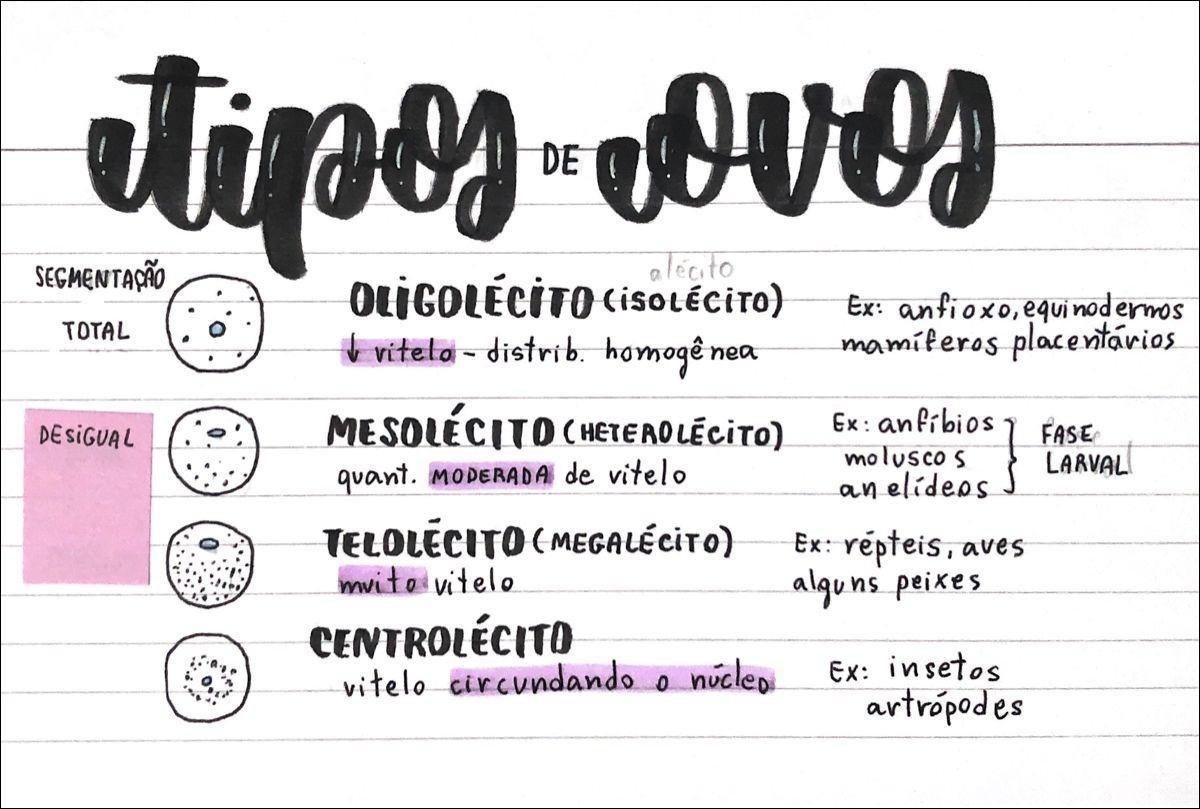 tipos DE ovos
SEGMENTAÇÃO
TOTAL
alécito
OLIGOLÉCITO (ISOLÉCITO)
↓ vitelo - distrib. homogênea
Ex: anfioxo, equinodermos
mamíferos placentários
DESIGUAL
MESOLÉCITO (HETEROLÉCITO)
quant. MODERADA de vitelo
Ex: anfíbios
moluscos
anelídeos
FASE
LARVAL
TELOLÉCITO (MEGALÉCITO)
muito vitelo
Ex: répteis, aves
alguns peixes
CENTROLÉCITO
vitelo circundando o núcleo
Ex: insetos
artrópodes